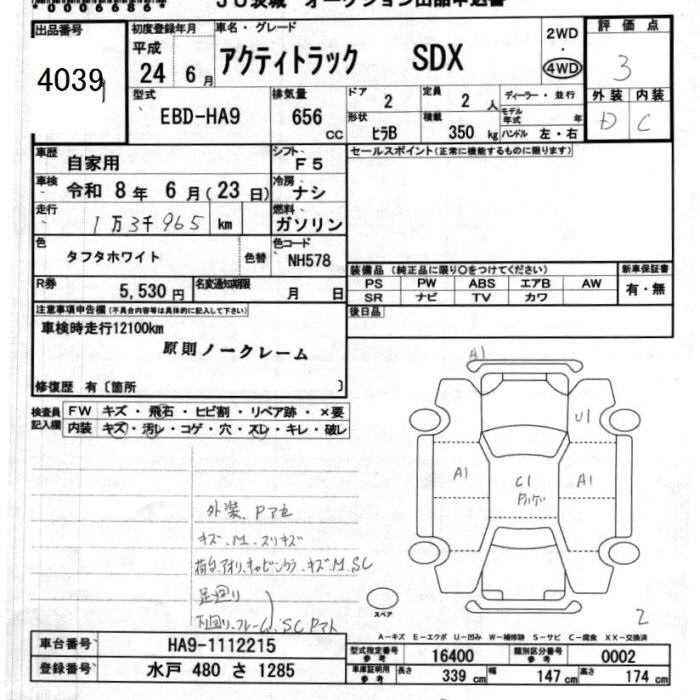 *0006686*
JU茨城 オークション出品申込書
出品番号 4039
初度登録年月 平成 24年 6月
車名・グレード アクティトラック SDX
2WD・4WD
評価点 3
外装 D 内装 C
型式 EBD-HA9
排気量 656 CC
ドア 2 定員 2 人
ディーラー・並行
形状 ヒラB 積載 350 kg
モデル年式 年
ハンドル 左・右
車歴 自家用
シフト F5
セールスポイント(正常に機能するものに限ります)
車検 令和 8年 6月(23日)
冷房 ナシ
走行 1万3千965 km
燃料 ガソリン
色 タフタホワイト
色替
色コード NH578
装備品 (純正品に限り○をつけてください)
新車保証書 有・無
PS PW ABS エアB AW
SR ナビ TV カワ
R券 5,530円
名変通知期限 月 日
後日品
注意事項申告欄(不具合内容等は具体的に記入して下さい)
車検時走行12100km
原則ノークレーム
修復歴 有〔箇所 〕
検査員記入欄
FW キズ・飛石・ヒビ割・リペア跡・×要
内装 キズ・汚レ・コゲ・穴・スレ・キレ・破レ
A1
U1
A1
C1
A1
外装、Pアセ
キズ、M、スリキズ
荷台、アオリ、キャビンウラ、キズ、M、SC
足廻り
下廻り、フレーム、SC Pアト
スペア
2
A-キズ E-エクボ U-凹み W-補修跡 S-サビ C-腐食 XX-交換済
車台番号 HA9-1112215
型式指定番号 参考 16400
類別区分番号 参考 0002
登録番号 水戸 480 さ 1285
車庫証明用 参考 長さ 339 cm 幅 147 cm 高さ 174 cm